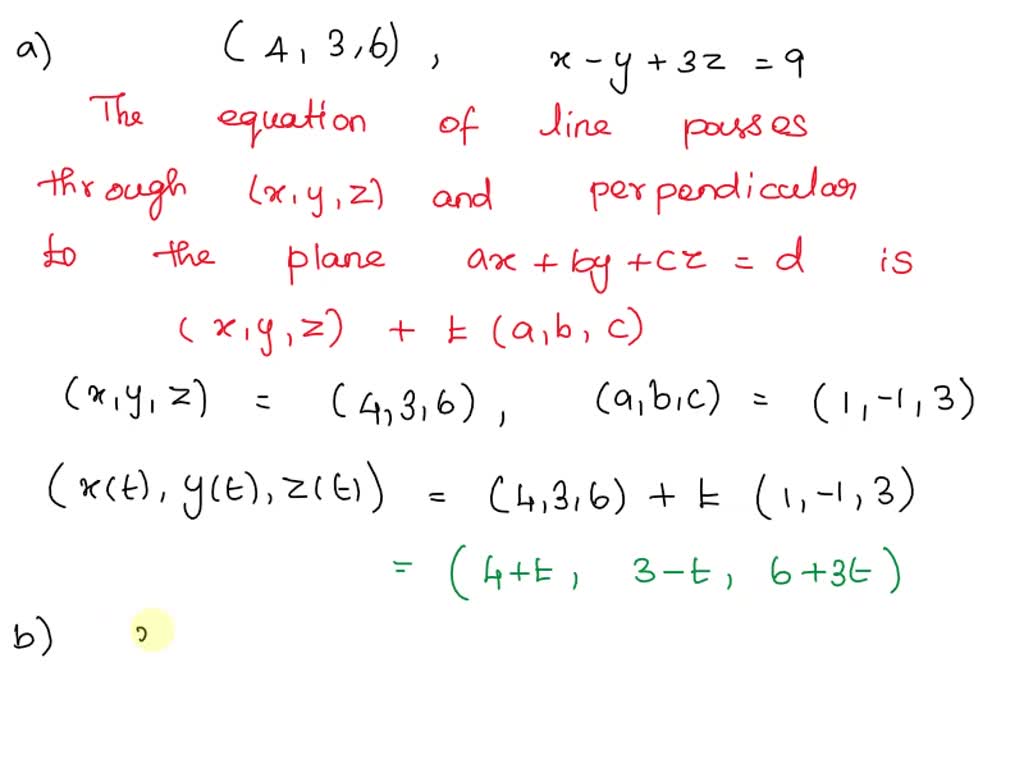 a) (4, 3, 6), x - y + 3z = 9
The equation of line passes
through (x, y, z) and perpendicular
to the plane ax + by + cz = d is
(x, y, z) + t (a, b, c)
(x, y, z) = (4, 3, 6), (a, b, c) = (1, -1, 3)
(x(t), y(t), z(t)) = (4, 3, 6) + t (1, -1, 3)
= (4+t, 3-t, 6+3t)
b)